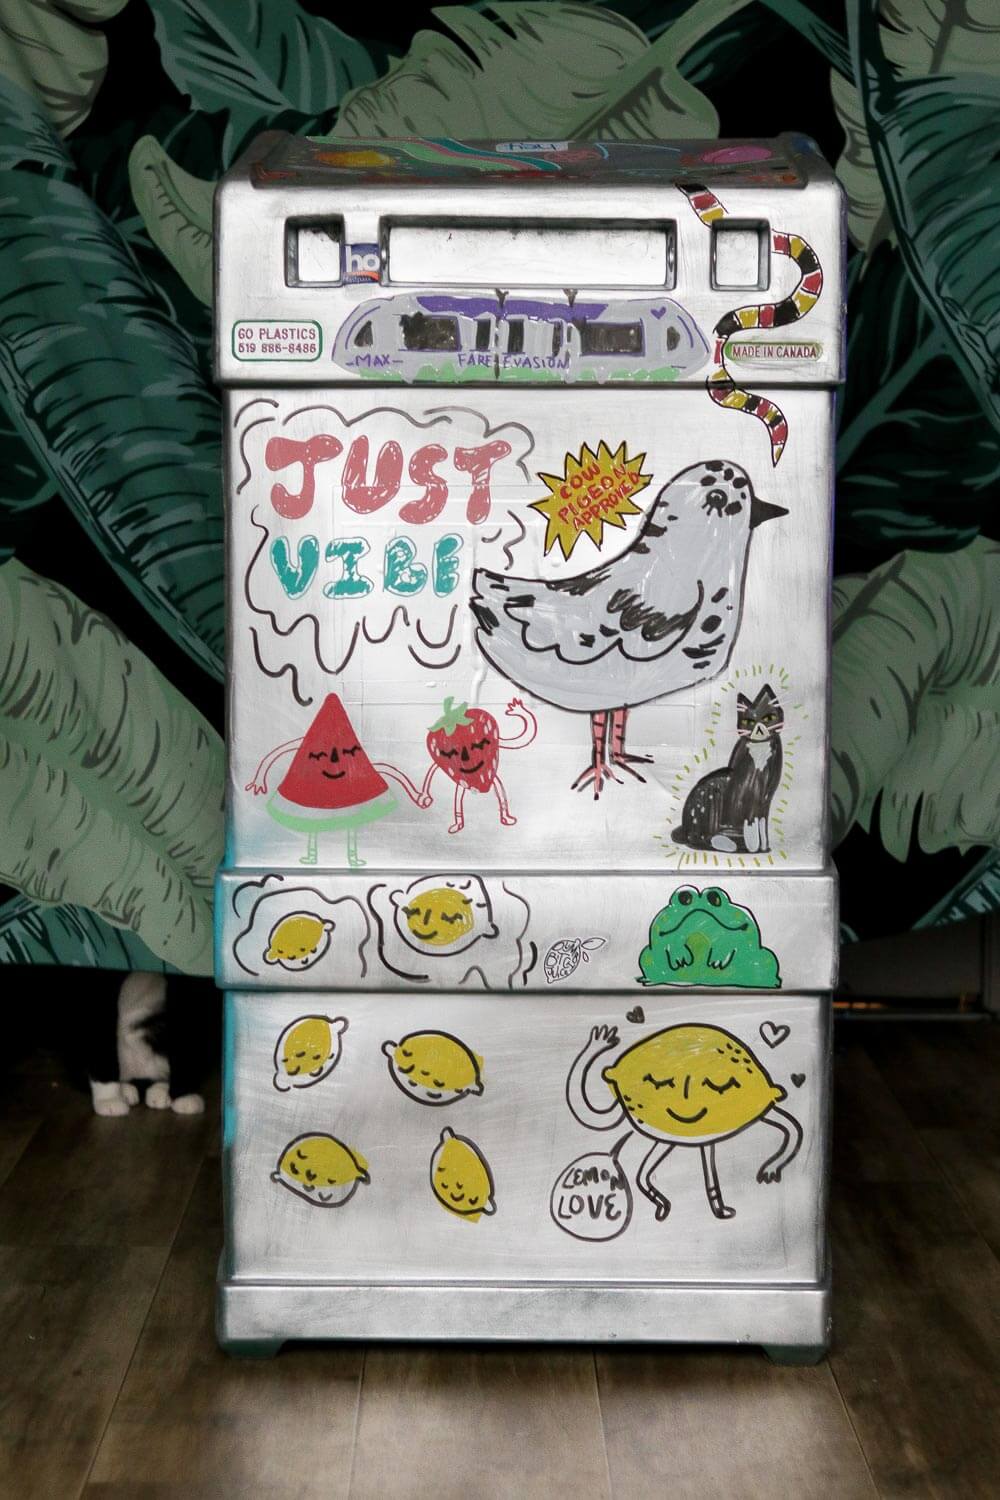 ho
GO PLASTICS
519 886-8486
MAX
FARE EVASION
MADE IN CANADA
JUST
VIBE
COW
PIGEON
APPROVED
LEMON
LOVE